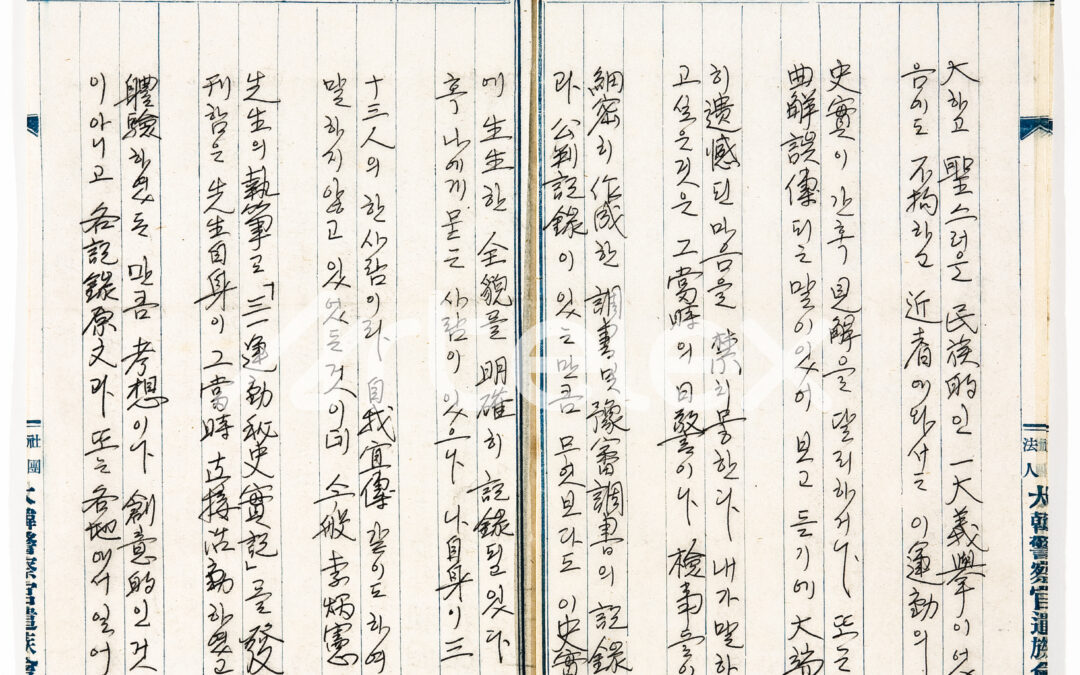 大하고 聖스러운 民族的인 一大義擧이었
음에도 不拘하고 近者에와서는 이運動의
史實이 간혹 見解을 달리하서나 또는
曲解誤傳되는 말이있어 보고 듣기에 大端
히 遺憾된 마음을 禁치못한다 내가 말하
고싶은것은 그當時의 日警이나 檢事들이
細密히 作成한 調書및豫審調書의 記錄
과 公判記錄이 있는만큼 무엇보다도 이史實
에 生生한 全貌를 明確히 記錄될었다
혹 나에게 묻는 사람이 있으나 나自身이 三
十三人의 한사람이라 自我宣傳같이도 하여
말하지않고 있었든것이며 今般 李炳憲
先生의 執筆로 「三一運動秘史實記」를 發
刊함은 先生自身이 그當時 直接活動하였고
體驗하였는 만큼 考想이나 創意的인 것
이아니고 各記錄原文과 또는 各地에서 일어
法人 大韓警察官遺族會
社團 大韓警察官遺族會